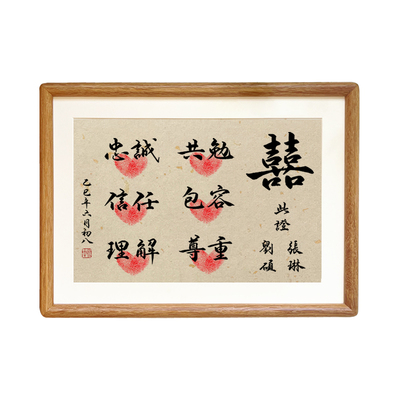 囍
此證
張琳
劉碩
共勉
包容
尊重
忠誠
信任
理解
乙巳年六月初八